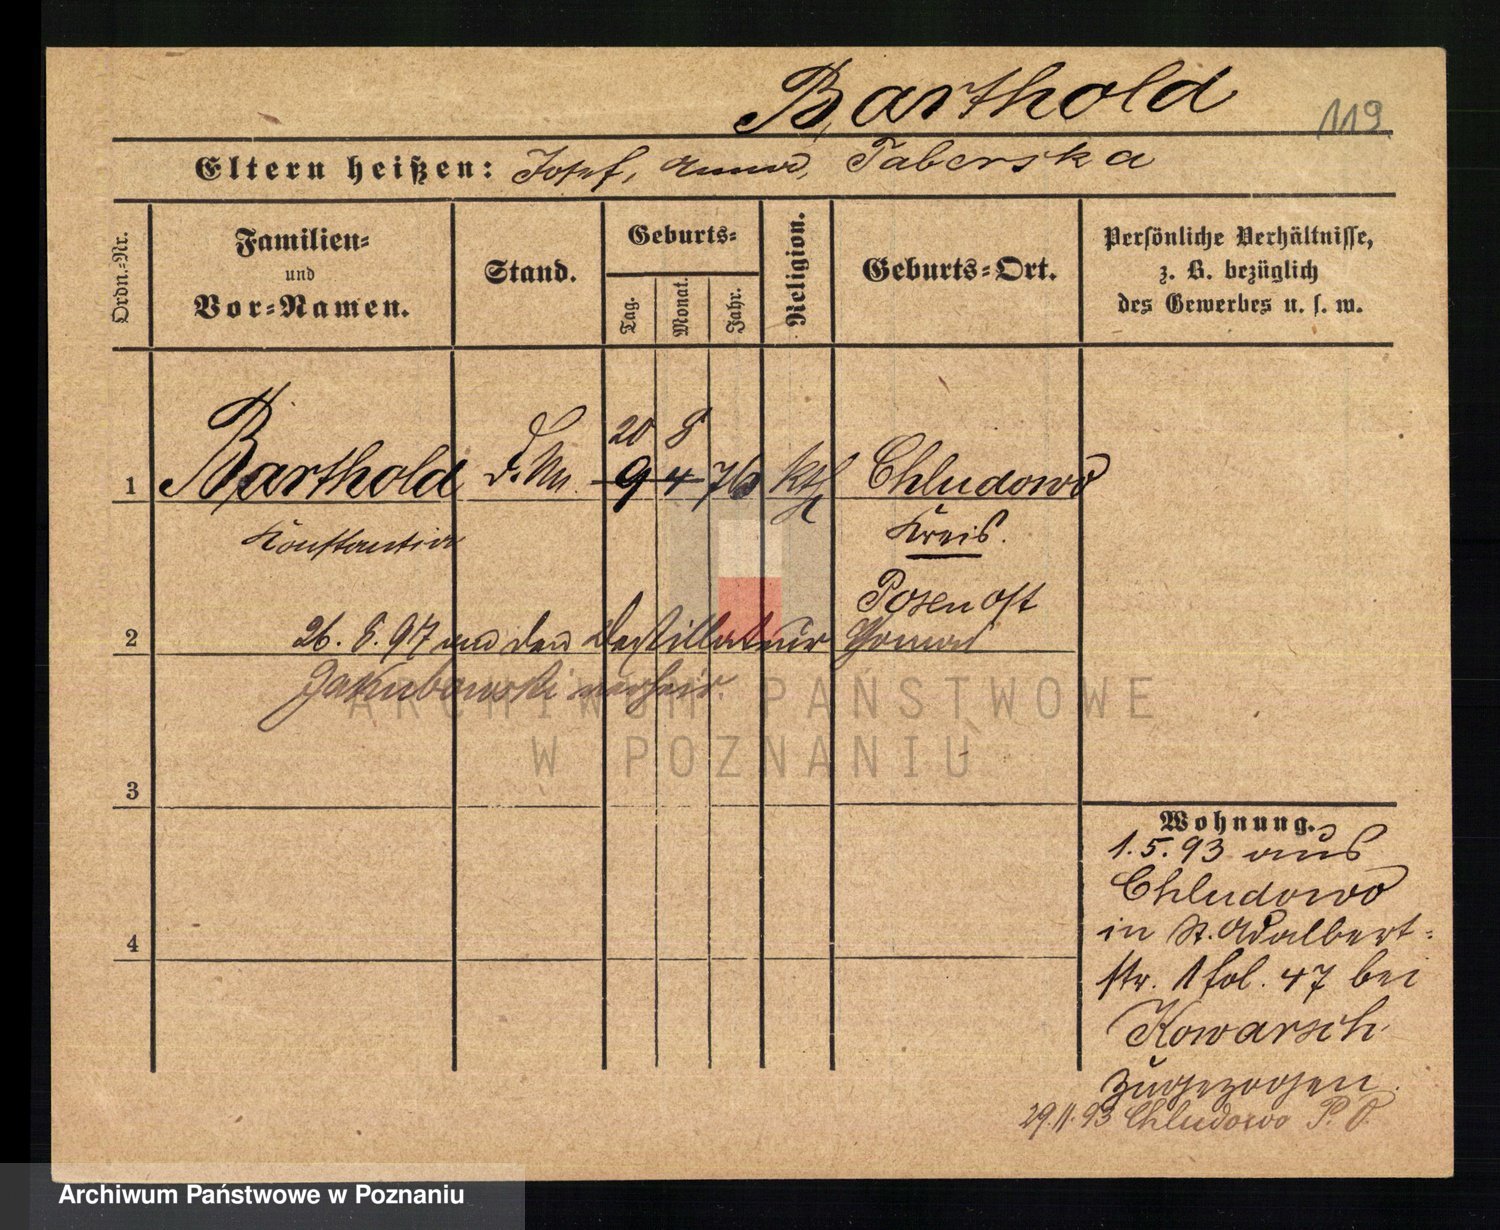 Barthold
119
Eltern heißen: Josef, Anna, Taberska
Ordn.-Nr.
Familien-
und
Vor-Namen.
Stand.
Geburts-
Tag.
Monat.
Jahr.
Religion.
Geburts-Ort.
Persönliche Verhältnisse,
z. B. bezüglich
des Gewerbes u. s. w.
20 8
1 Barthold 9 4 76 kth Chludowo
Konstantia Kreis.
Posen Ost
2 26. 8. 97 an den Destillateur Thomas
Jakubowski verheir.
3
4
Wohnung.
1.5.93 aus
Chludowo
in St. Adalbert-
str. 1 fol. 47 bei
Kowarsch
zugezogen.
29.11.93 Chludowo P. O.
ARCHIWUM PAŃSTWOWE
W POZNANIU
Archiwum Państwowe w Poznaniu